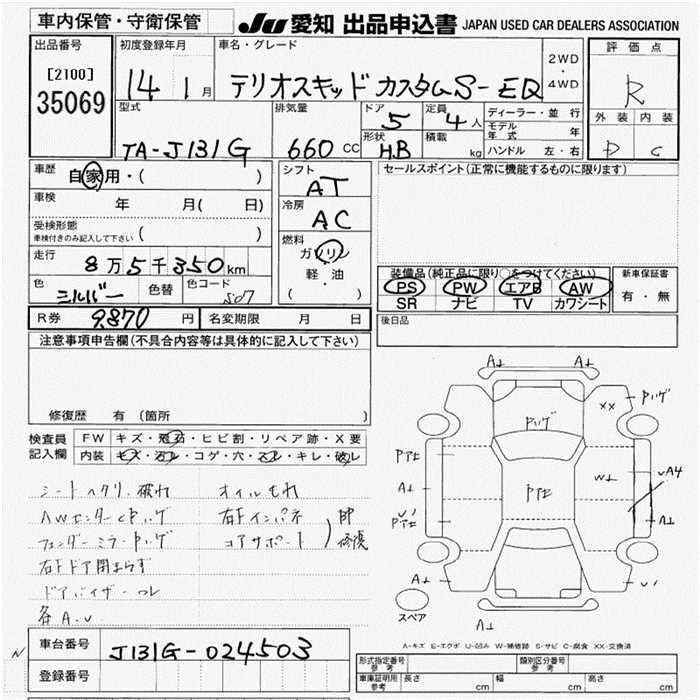 車内保管・守衛保管
JU 愛知 出品申込書 JAPAN USED CAR DEALERS ASSOCIATION
出品番号
[2100]
35069
初度登録年月
14 1 月
車名・グレード
テリオスキッド カスタムS-EQ
2WD
・
4WD
評価点
R
外装 内装
D C
型式
TA-J131G
排気量
660 CC
ドア
5
定員
4 人
形状
H.B
積載
kg
ディーラー・並行
モデル年式 年
ハンドル 左・右
車歴
自家用・( )
車検
年 月( 日)
受検形態
車検付きのみ記入して下さい ( )
走行
8万5千350km
色
シルバー
色替
色コード
S07
シフト
AT
冷房
AC
燃料
ガソリン
軽・油
( )
セールスポイント(正常に機能するものに限ります)
装備品(純正品に限り○をつけてください)
PS PW エアB AW
SR ナビ TV カワシート
新車保証書
有・無
R券 9,870 円
名変期限 月 日
後日品
注意事項申告欄(不具合内容等は具体的に記入して下さい)
修復歴 有(箇所 )
検査員記入欄
FW キズ・飛石・ヒビ割・リペア跡・X要
内装 キズ・汚レ・コゲ・穴・スレ・キレ・破レ
シートヘタリ、破れ
オイルもれ
AWセンターCPハゲ
右Fインパネ
フェンダーミラーPハゲ
コアサポート
修復
右Fドア閉まらず
ドアバイザーワレ
各A.U
A⊥ A⊥
Pハゲ
XX
Pハゲ
A⊥
W⊥
UA4
A⊥
A⊥
A⊥
スペア
A-キズ E-エクボ U-凹み W-補修跡 S-サビ C-腐食 XX-交換済
車台番号
J131G-024503
登録番号
形式指定番号
参考
類別区分番号
参考
車庫証明用
参考
長さ cm
幅 cm
高さ cm